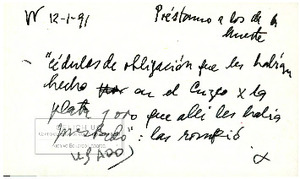 W 12-1-91
Préstamo a los de la
muerte
- "cédulas de obligación que les habían
hecho en el Cuzco x la
plata y oro que allí les había
prestado": las rompió
x